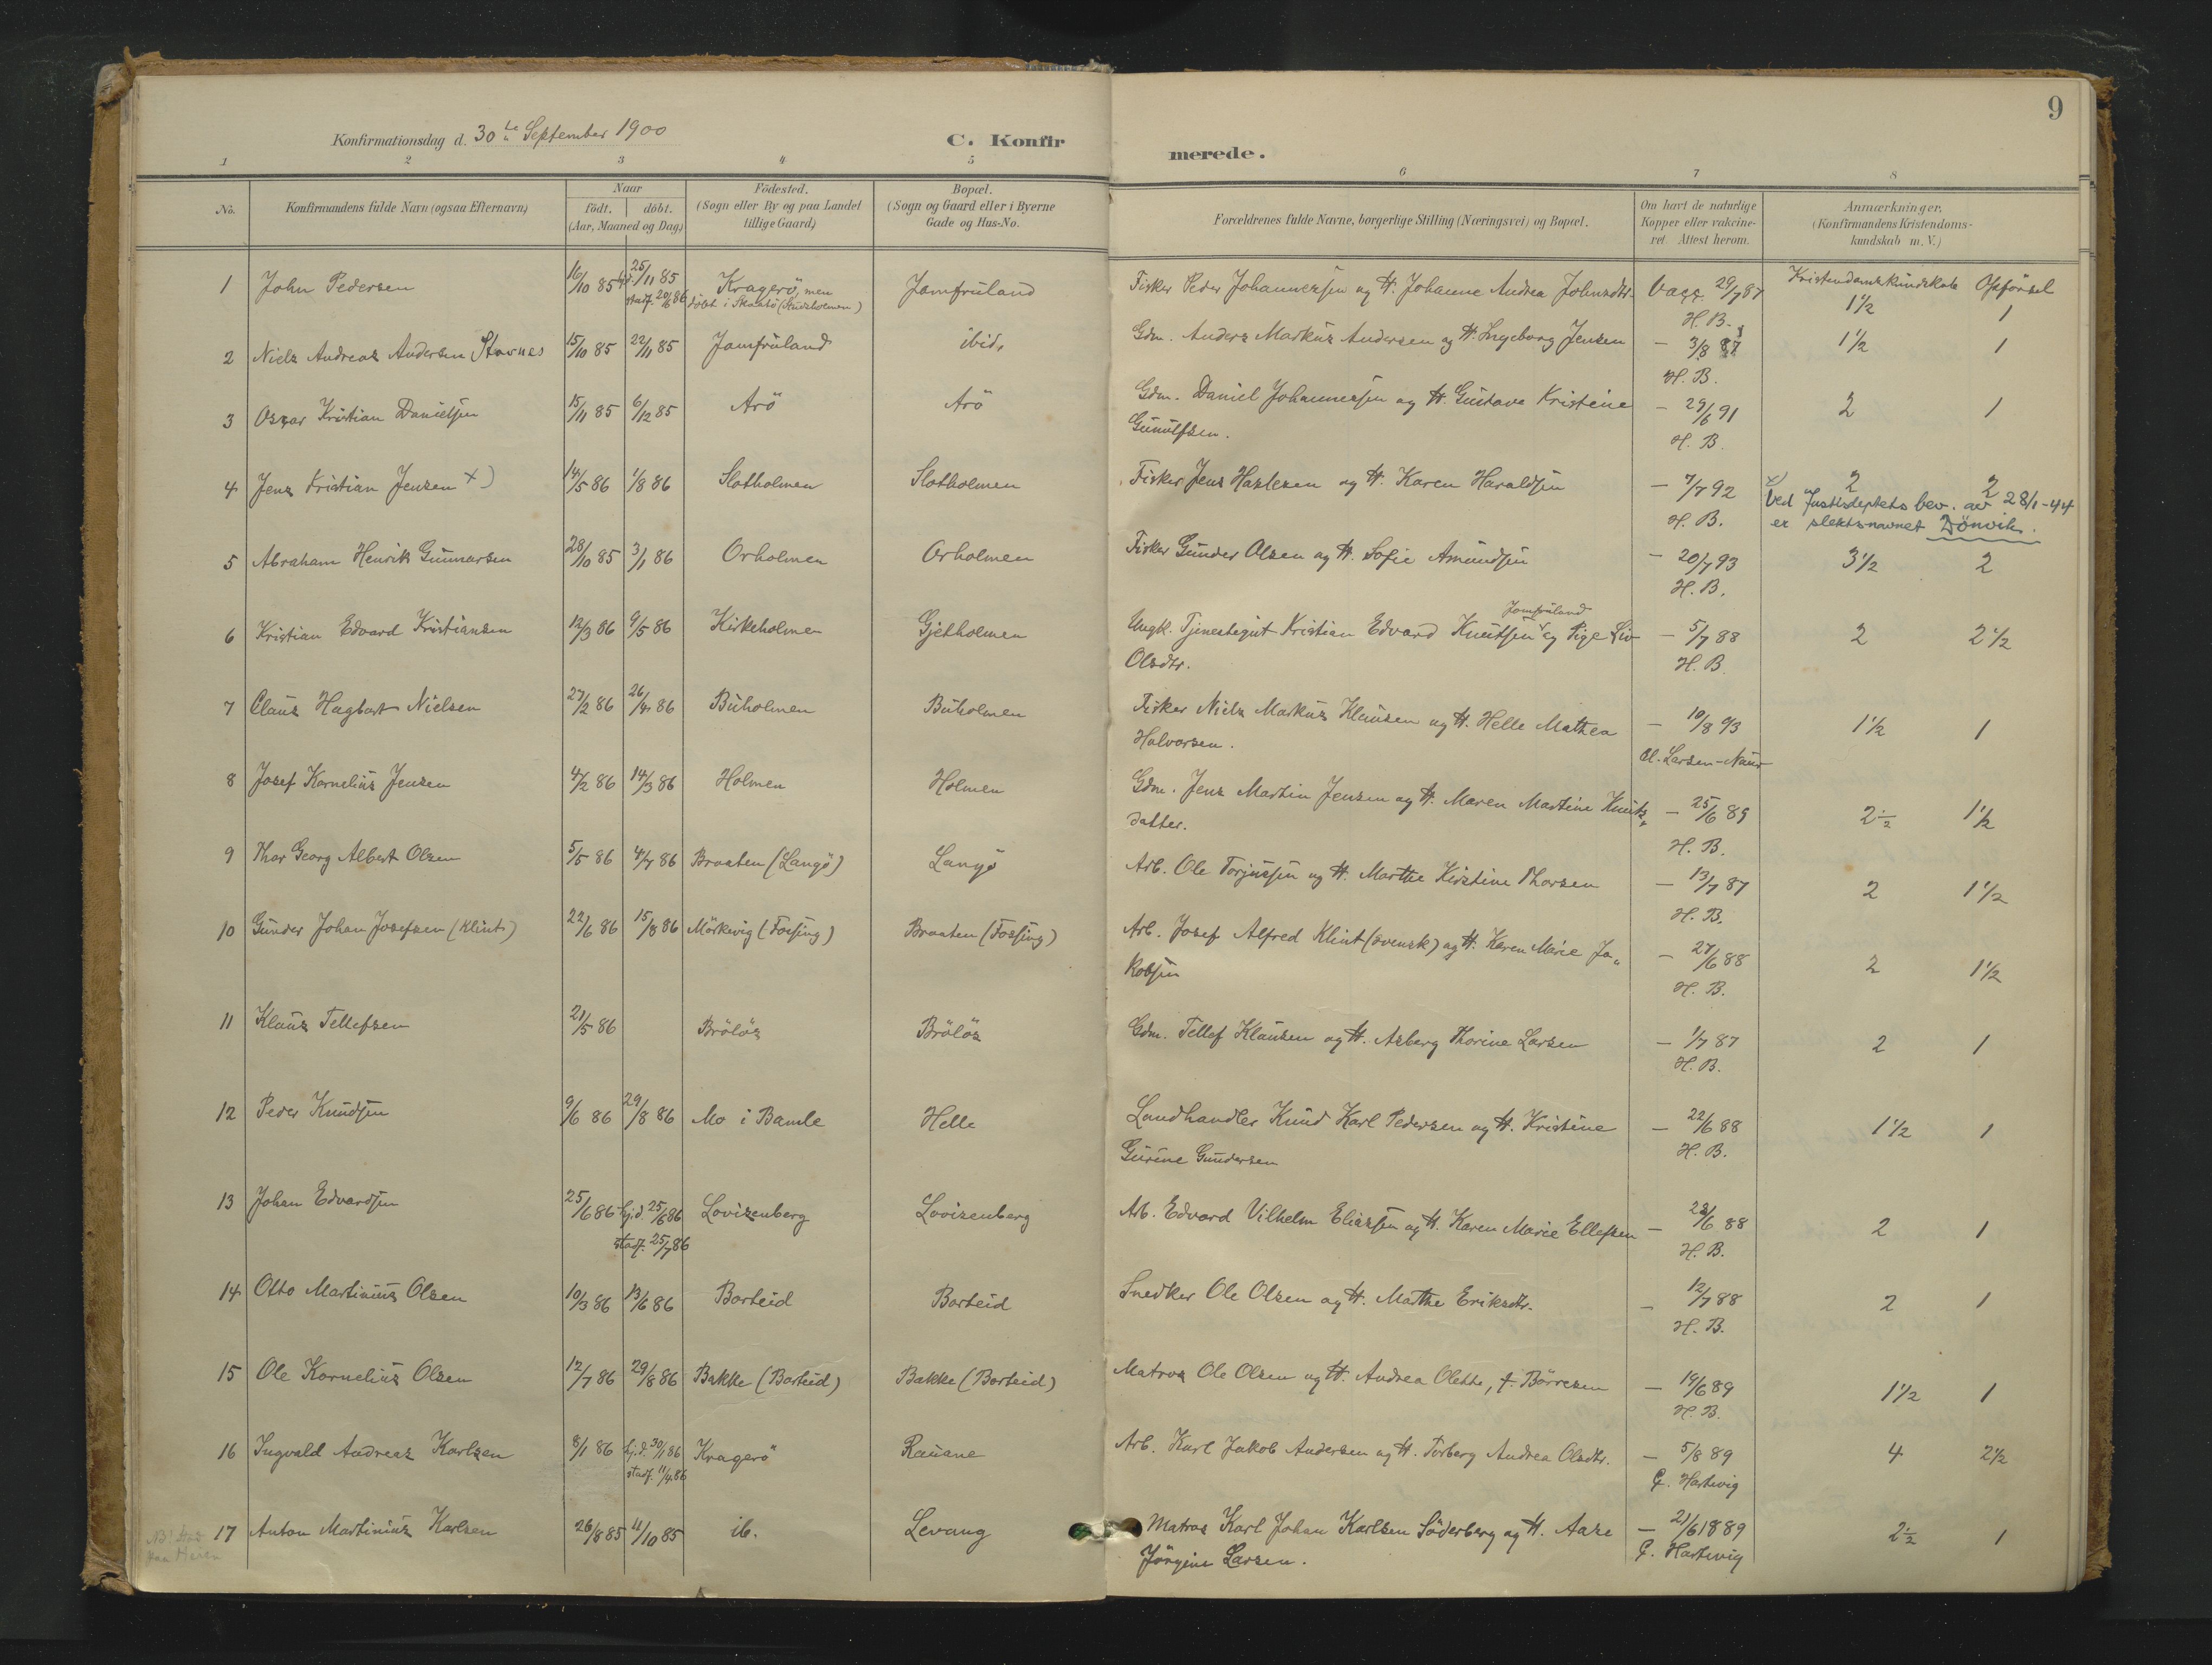 9
Konfirmationsdag d. 30te September 1900
C. Konfirmerede.
1 2 3 4 5 6 7 8
No.
Konfirmandens fulde Navn (ogsaa Efternavn)
Naar
födt. | döbt.
(Aar, Maaned og Dag)
Födested.
(Sogn eller By og paa Landet
tillige Gaard)
Bopæl.
(Sogn og Gaard eller i Byerne
Gade og Hus-No.
Forældrenes fulde Navne, borgerlige Stilling (Næringsvei) og Bopæl.
Om havt de naturlige
Kopper eller vakcine-
ret. Attest herom.
Anmærkninger.
(Konfirmandens Kristendoms-
kundskab m. V.)
Kristendomskundskab Opförsel
1 John Pedersen 16/10 85 hjd. 25/11 85 Kragerö, men Jomfruland Fisker Peder Johannessen og H. Johanne Andrea Johnsdtr. Vacc. 29/7 87 1½ 1
stadf. 20/6 86 döbt i Skaatö (Skudsholmen) H. B.
2 Niels Andreas Andersen Stavnes 15/10 85 22/11 85 Jomfruland ibid. Gdm. Anders Markus Andersen og H. Ingeborg Jensen – 3/8 87 1½ 1
H. B.
3 Oscar Kristian Danielsen 15/11 85 6/12 85 Arö Arö Gdm. Daniel Johannessen og H. Gustava Kristine – 29/6 91 2 1
Gunulfsen. H. B.
4 Jens Kristian Jensen x) 14/5 86 1/8 86 Slotholmen Slotholmen Fisker Jens Harlesen og H. Karen Haraldsen – 7/7 92 2 2
H. B.
x) Ved Justisdeptets bev. av 28/1-44
er slektsnavnet Dönvik.
5 Abraham Henrik Gunnarsen 28/10 85 3/1 86 Orholmen Orholmen Fisker Gunder Olsen og H. Sofie Amundsen – 20/7 93 3½ 2
H. B.
6 Kristian Edvard Kristiansen 12/3 86 9/5 86 Kirkeholmen Gjetholmen Ungk. Tjenestegut Kristian Edvard Knutsen Jomfruland og Pige Liv – 5/7 88 2 2½
Olsdtr. H. B.
7 Claus Hagbart Nielsen 27/2 86 26/4 86 Buholmen Buholmen Fisker Niels Markus Klausen og H. Helle Mathea – 10/8 93 1½ 1
Halvorsen. Cl. Larsen-Naur
8 Josef Kornelius Jensen 4/2 86 14/3 86 Holmen Holmen Gdm. Jens Martin Jensen og H. Maren Martine Knuts- – 25/6 89 2½ 1½
datter. H. B.
9 Thor Georg Albert Olsen 5/5 86 4/7 86 Braaten (Langö) Langö Arb. Ole Torjussen og H. Marthe Kirstine Thorsen – 13/7 87 2 1½
H. B.
10 Gunder Johan Josefsen (Klint) 22/6 86 15/8 86 Mörkevig (Fossing) Braaten (Fossing) Arb. Josef Alfred Klint (svensk) og H. Karen Marie Ja- – 27/6 88 2 1½
kobsen H. B.
11 Klaus Tellefsen 21/5 86 Brölös Brölös Gdm. Tellef Klausen og H. Asberg Thorine Larsen – 1/7 87 2 1
H. B.
12 Peder Knudsen 9/6 86 29/8 86 Mo i Bamle Helle Landhandler Knud Karl Pedersen og H. Kristine – 22/6 88 1½ 1
Gurine Gundersen H. B.
13 Johan Edvardsen 25/6 86 hj.d. 25/6 86 Lovisenberg Lovisenberg Arb. Edvard Vilhelm Eliassen og H. Karen Marie Ellefsen – 28/6 88 2 1
stadf. 25/7 86 H. B.
14 Otto Martinius Olsen 10/3 86 13/6 86 Borteid Borteid Snedker Ole Olsen og H. Marthe Eriksdtr. – 12/7 88 2 1
H. B.
15 Ole Kornelius Olsen 12/7 86 29/8 86 Bakke (Borteid) Bakke (Borteid) Matros Ole Olsen og H. Andrea Olette, f. Börresen – 19/6 89 1½ 1
H. B.
16 Ingvald Andreas Karlsen 8/1 86 hj.d. 30/1 86 Kragerö Rauane Arb. Karl Jakob Andersen og H. Torberg Andrea Olsdtr. – 5/8 89 4 2½
stadf. 11/4 86 C. Hartvig
17 Anton Martinius Karlsen 26/8 85 11/10 85 ib. Levang Matros Karl Johan Karlsen Söderberg og H. Aase – 21/6 1889 2½ 1
Jörgine Larsen. C. Hartevig